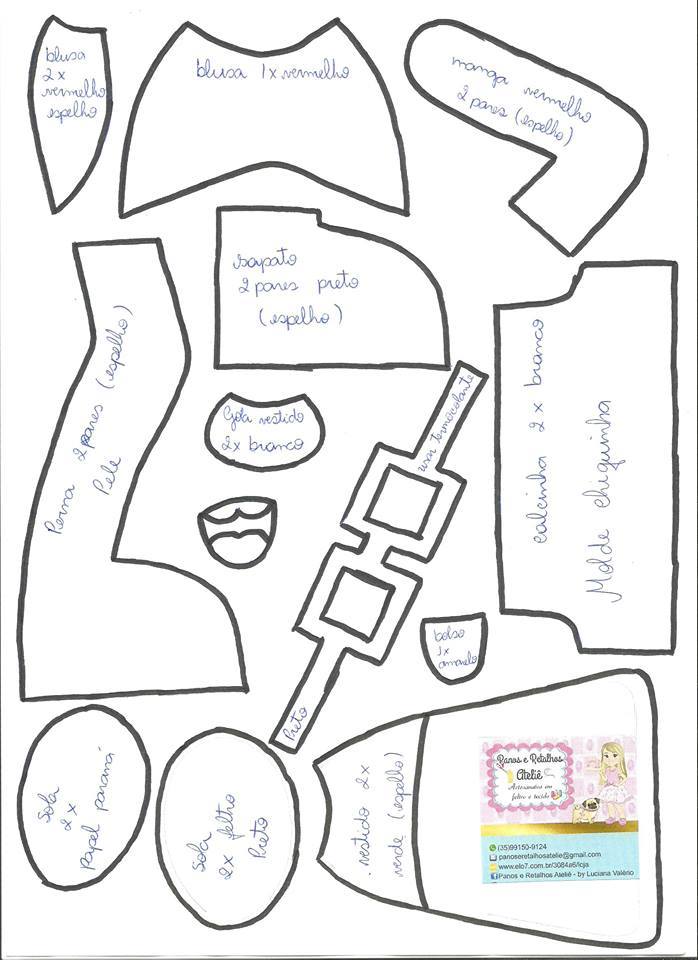 blusa
2 x
vermelho
espelho
blusa 1x vermelho
manga vermelho
2 pares (espelho)
sapato
2 pares preto
(espelho)
Perna 2 pares (espelho)
Pele
Gola vestido
2x branco
usar termocolante
Preto
calcinha 2 x branco
Molde chiquinha
bolso
1x
amarelo
Sola
2x
Papel paraná
Sola
2x feltro
Preto
vestido 2x
verde (espelho)
Panos e Retalhos
Ateliê
Artesanatos em
feltro e tecido
(35)99150-9124
panoseretalhosatelie@gmail.com
www.elo7.com.br/3084a6/loja
Panos e Retalhos Ateliê - by Luciana Valério